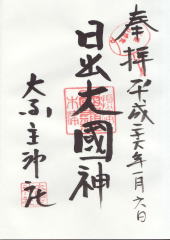 奉拝 平成二十六年一月六日
日出大國神
大国主神社